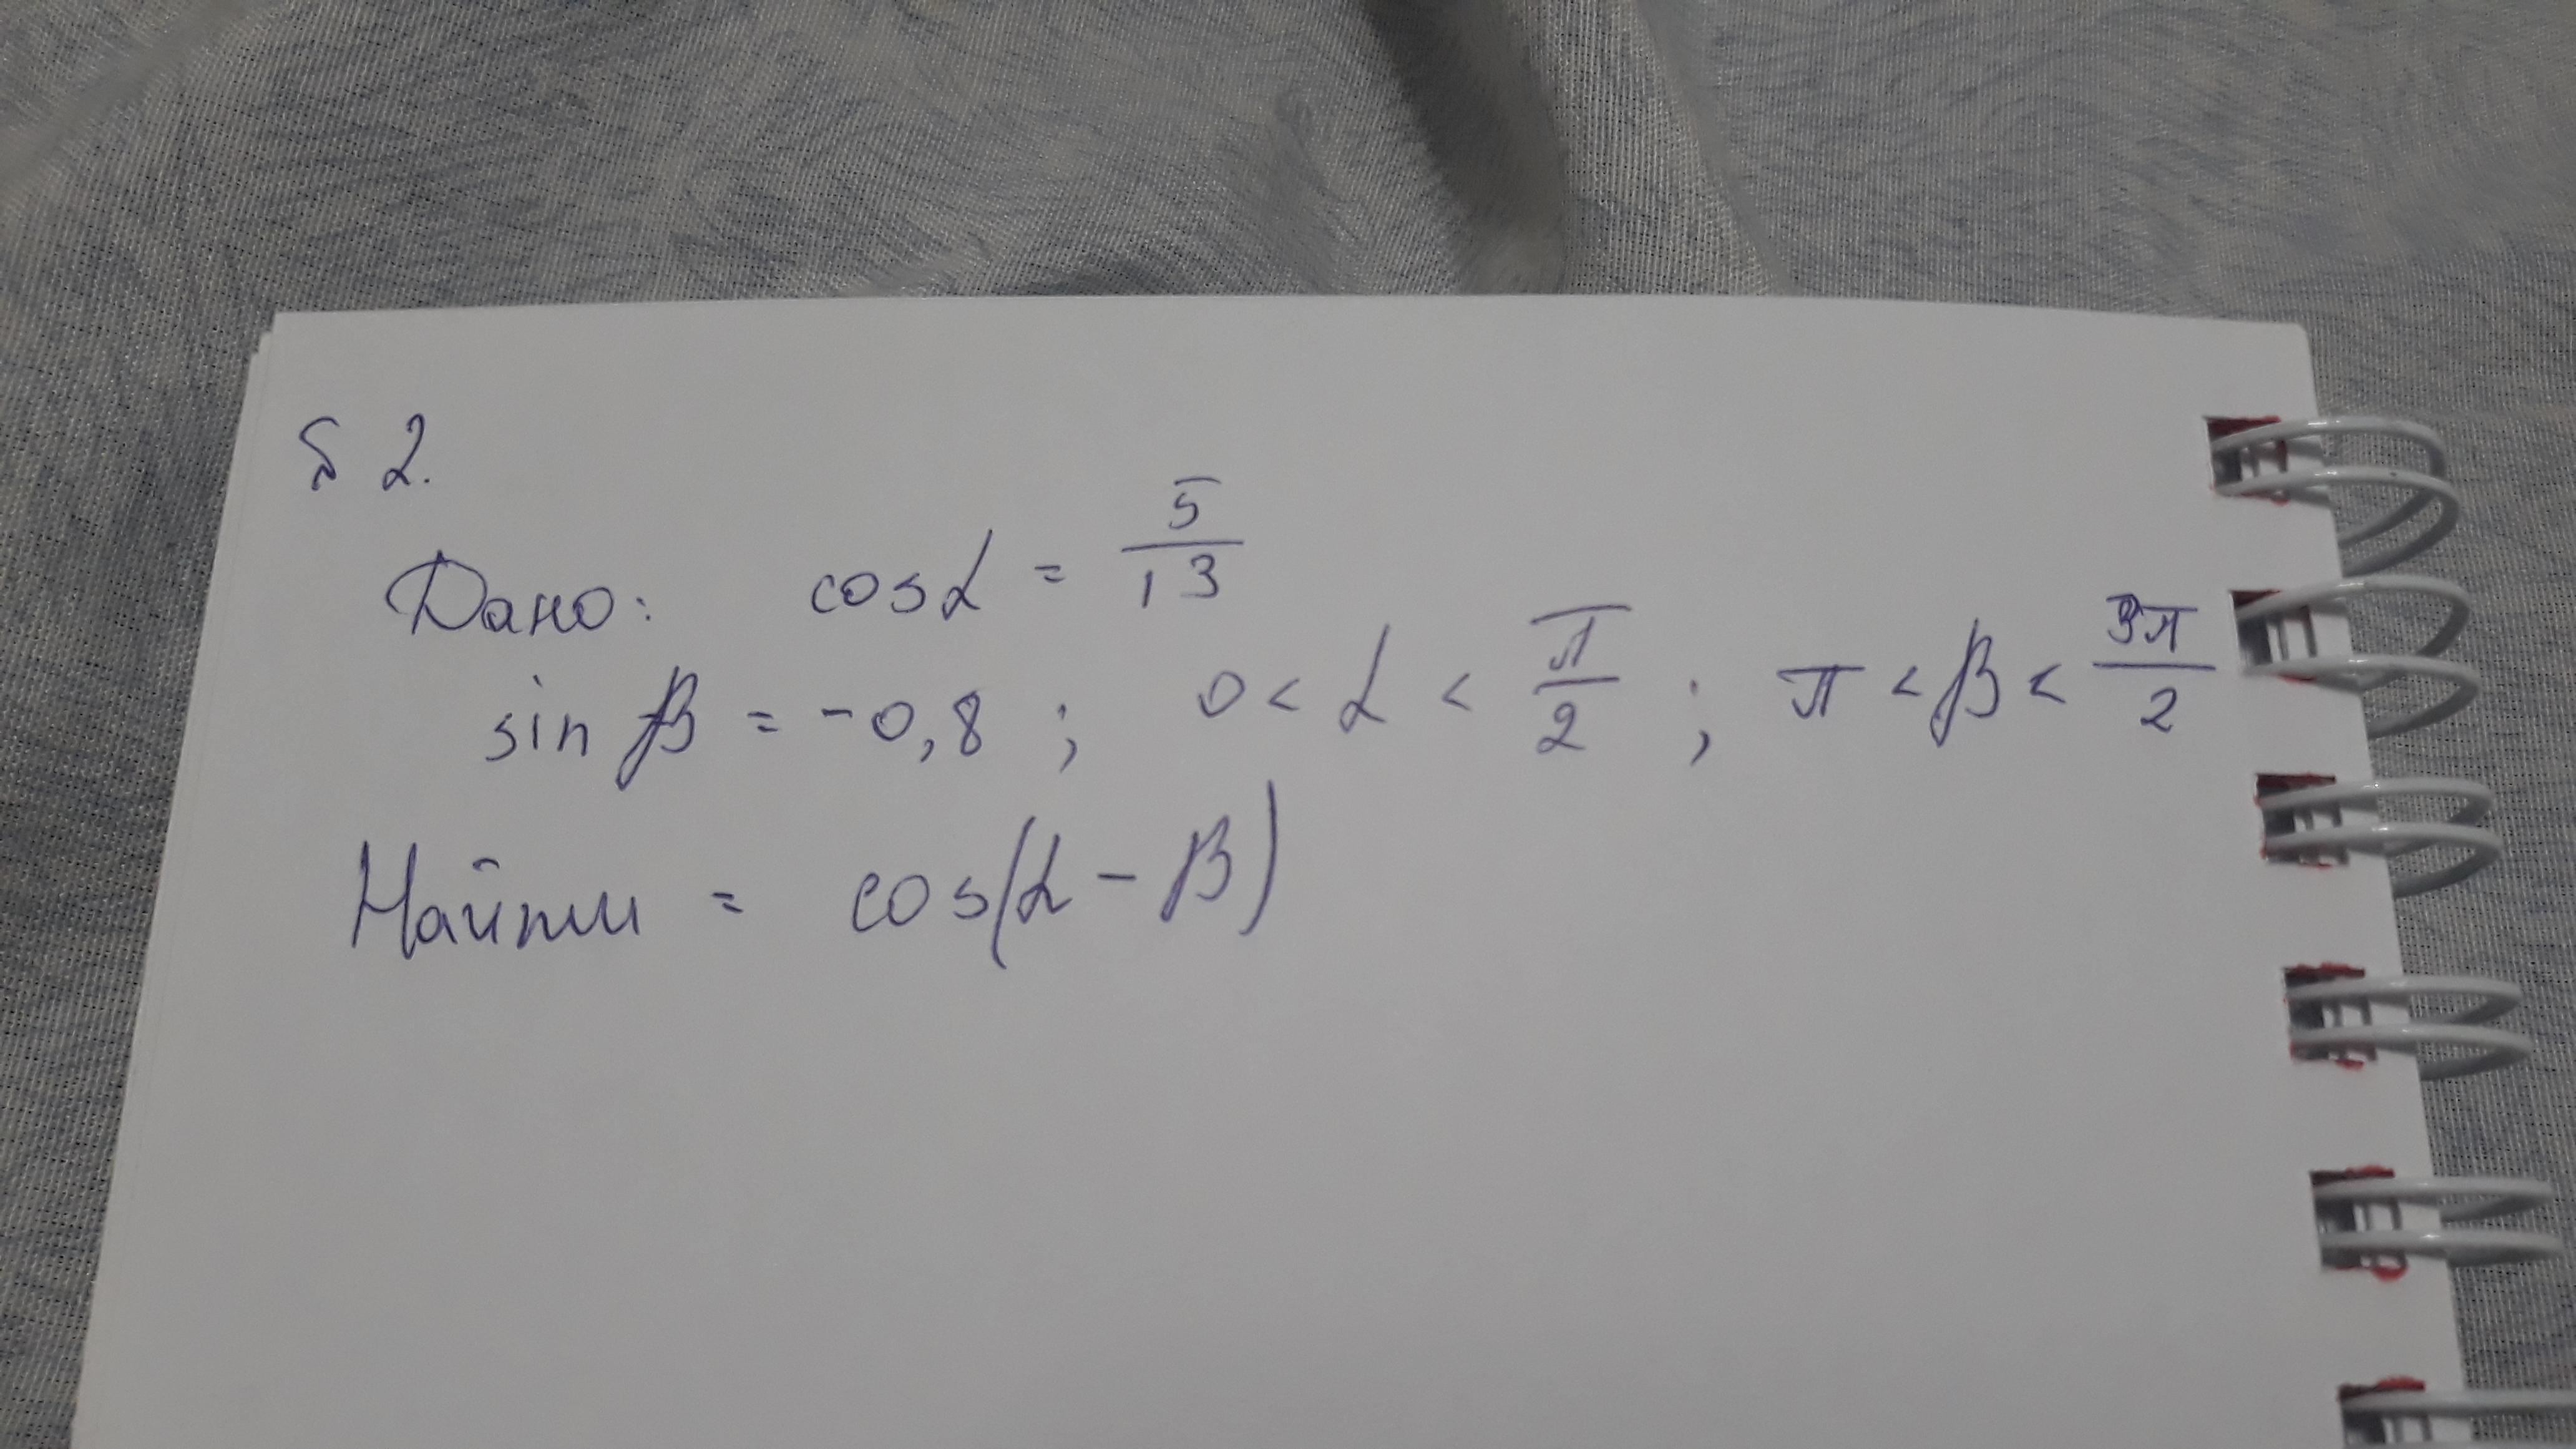 § 2.
Дано: cos α = 5/13
sin β = -0,8 ; 0 < α < π/2 ; π < β < 3π/2
Найти = cos(α - β)